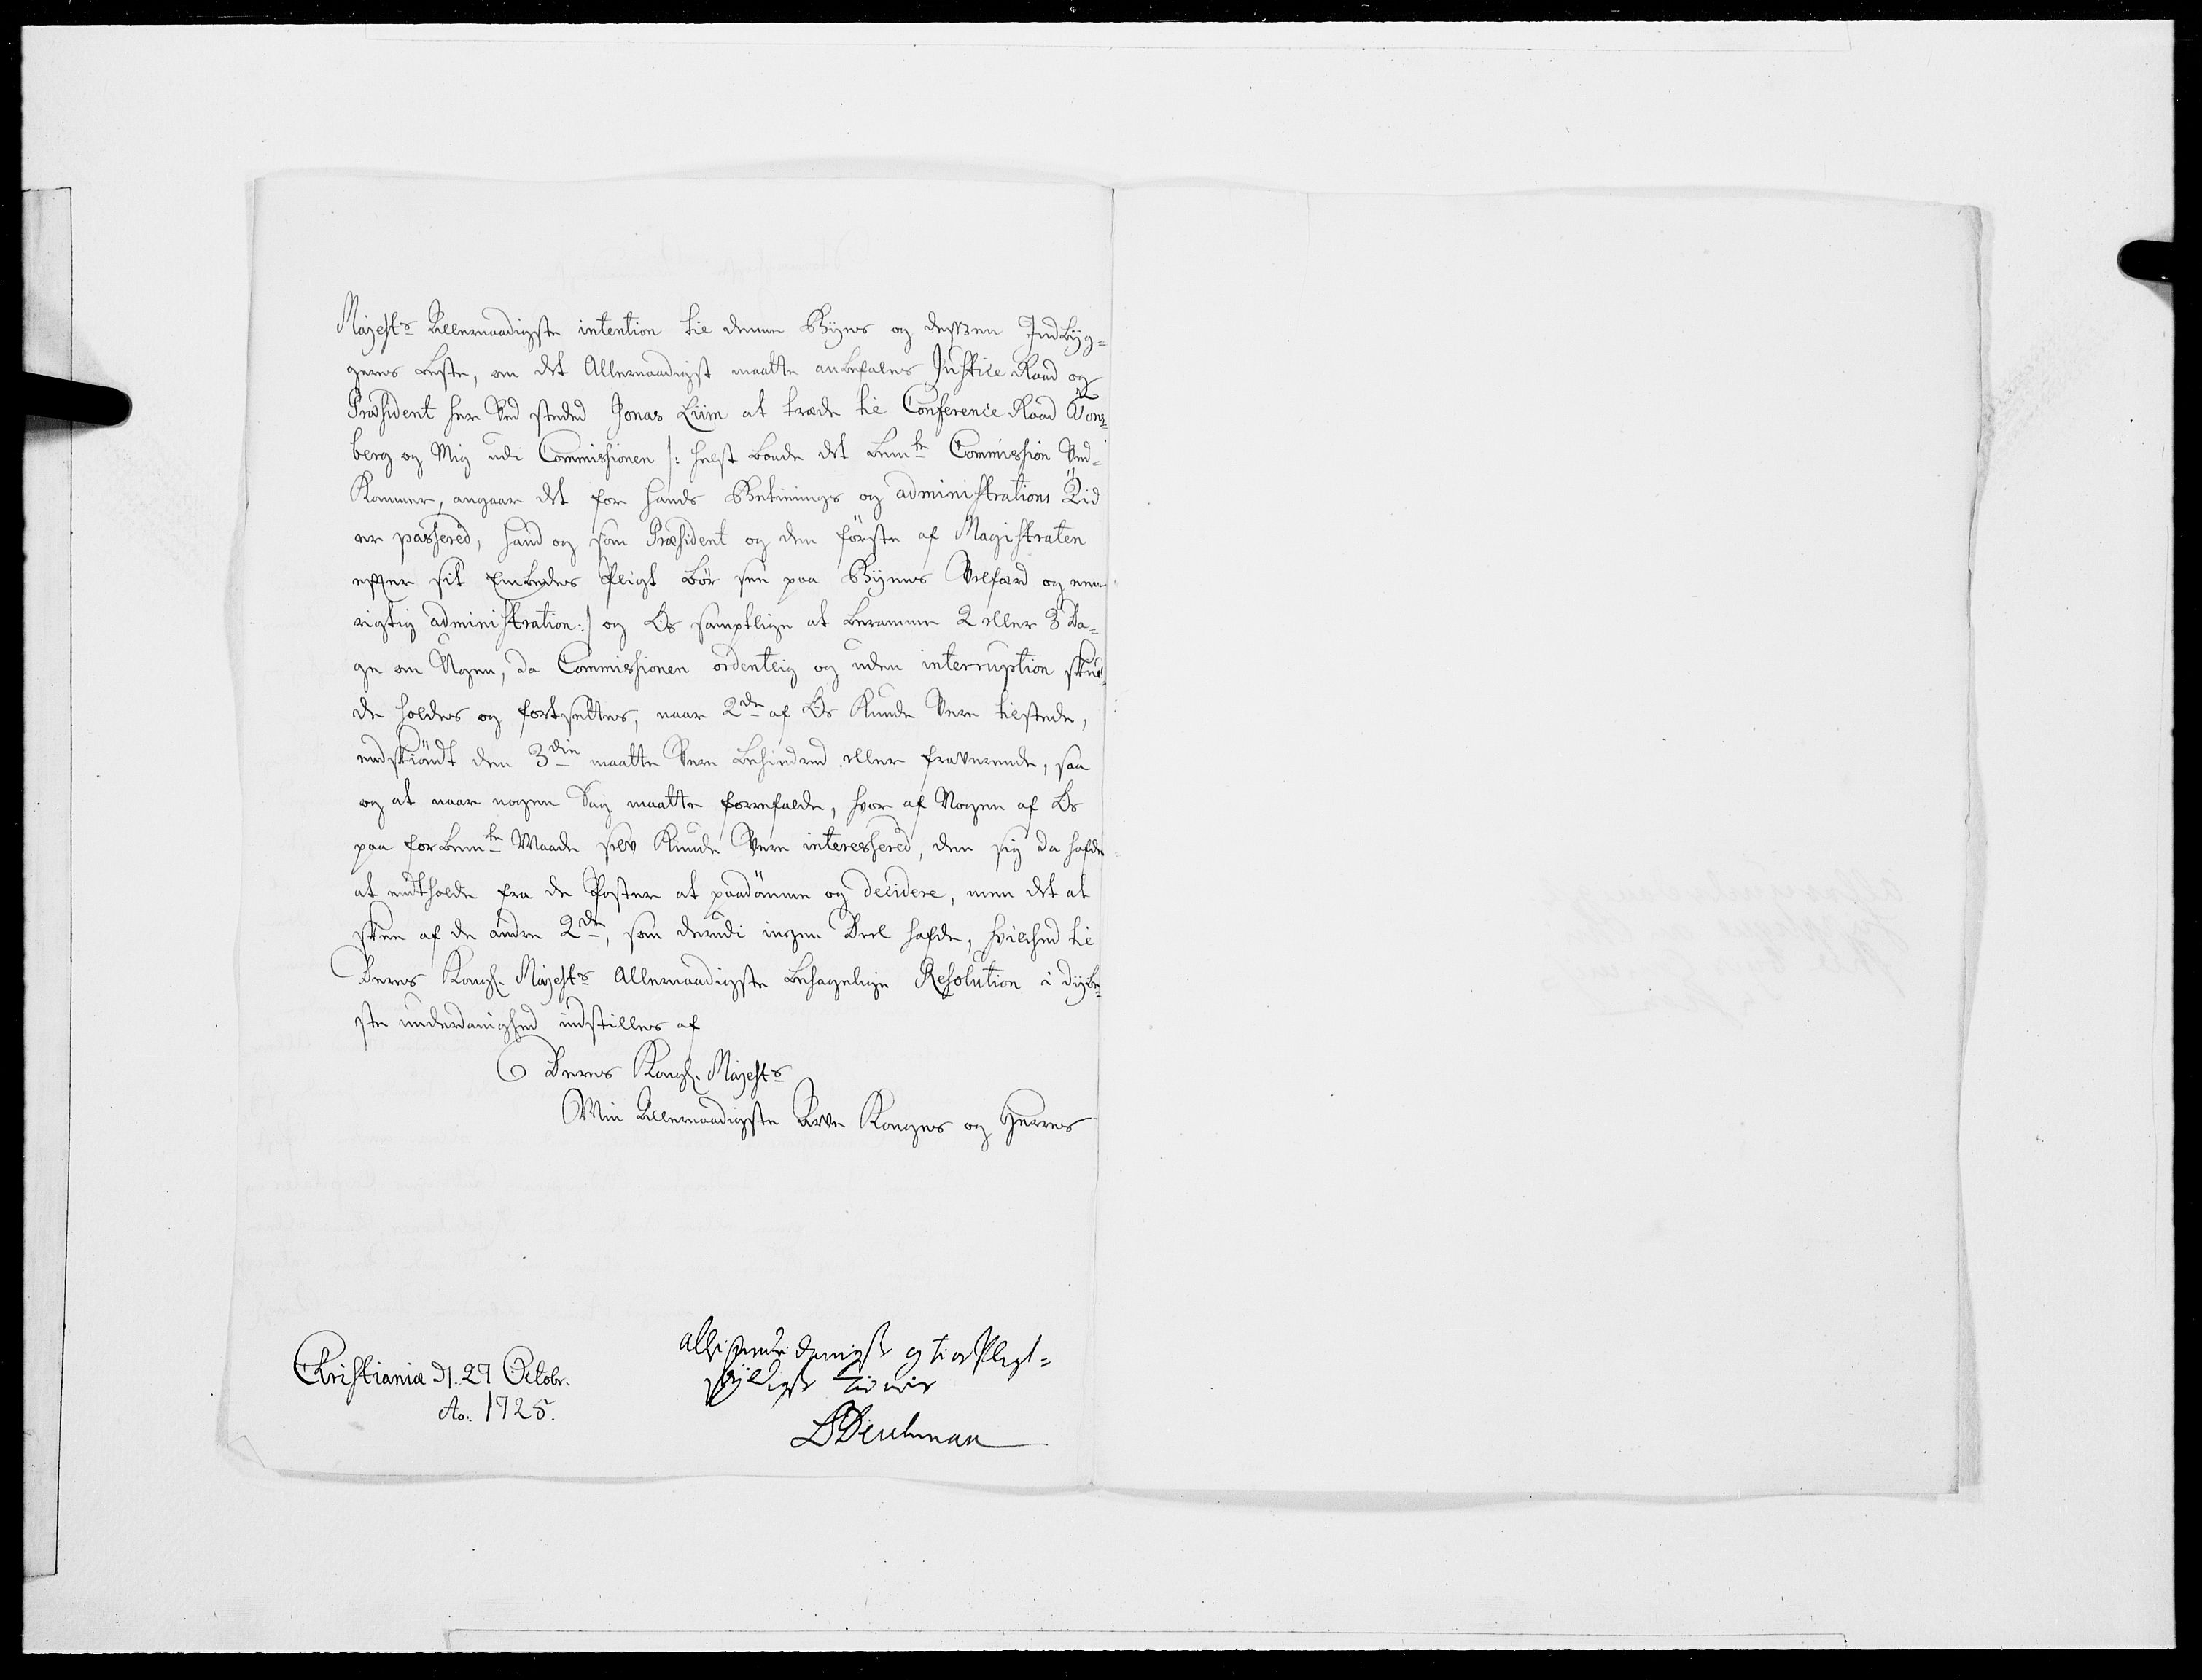 Majest.s Allernaadigste intention til denne Byes og dessen Indbyg-
geres beste, om det Allernaadigst maatte anbefales Justice Raad og
Præsident her Ved steded Jonas Liim at træde til Conference Raad Tons-
berg og Mig udi Commissionen /: helst baade det bem.te Commission Ved-
kommer, angaar det for hands Betienings og administrations Tid
er passered, hand og som Præsident og den förste af Magistraten
efter sit Embedes Pligt bör see paa Byens Velfærd og een
rigtig administration :/ og Os samptlige at beramme 2 eller 3 Da-
ge om Ugen, da Commissionen ordentlig og uden interruption skul-
de holdes og fortsettes, naar 2de af Os kunde Være tilstede,
endskiöndt den 3die maatte Være behindred eller fraværende, saa
og at naar nogen Sag maatte forrefalde, hvor af Nogen af Os
paa forbem.te Maade selv kunde Være interessered, den sig da hafde
at endtholde fra de Poster at paadömme og decidere, men det at
skee af de andre 2de, som derudi ingen Deel hafde, hvilched til
Deres Kongl. Majest.s Allernaadigste behagelige Resolution i dybe-
ste underdanighed indstilles af
Deres Kongl. Majest.s
Min Allernaadigste Arve Konges og Herres
Christiania d. 27 Octobr.
Ao. 1725.
allerunderdanigste og troe Pligt-
skyldigste Tiener
BDeichman